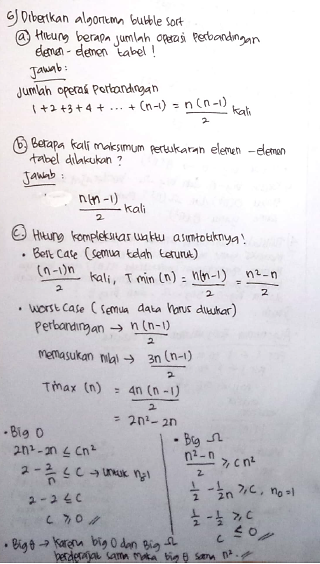 6) Diberikan algoritma bubble sort
(a) Hitung berapa jumlah operasi perbandingan
elemen - elemen tabel !
Jawab :
Jumlah operasi Perbandingan
1 + 2 + 3 + 4 + ... + (n-1) = n(n-1)/2 kali
(b) Berapa kali maksimum pertukaran elemen - elemen
tabel dilakukan ?
Jawab :
n(n-1)/2 kali
(c.) Hitung kompleksitas waktu asimtotiknya!
• Best Case (semua telah terurut)
(n-1)n/2 kali, T min (n) = n(n-1)/2 = n²-n/2
• Worst Case ( semua data harus ditukar)
Perbandingan → n(n-1)/2
Memasukan nilai → 3n(n-1)/2
Tmax (n) = 4n(n-1)/2
= 2n² - 2n
• Big O
2n² - 2n ≤ Cn²
2 - 2/n ≤ C → untuk n₀=1
2 - 2 ≤ C
C ≥ 0 //
• Big Ω
n²-n/2 ≥ Cn²
1/2 - 1/2n ≥ C, n₀=1
1/2 - 1/2 ≥ C
C ≤ 0 //
• Big θ → Karena big O dan Big Ω
berderajat sama maka big θ sama n². //